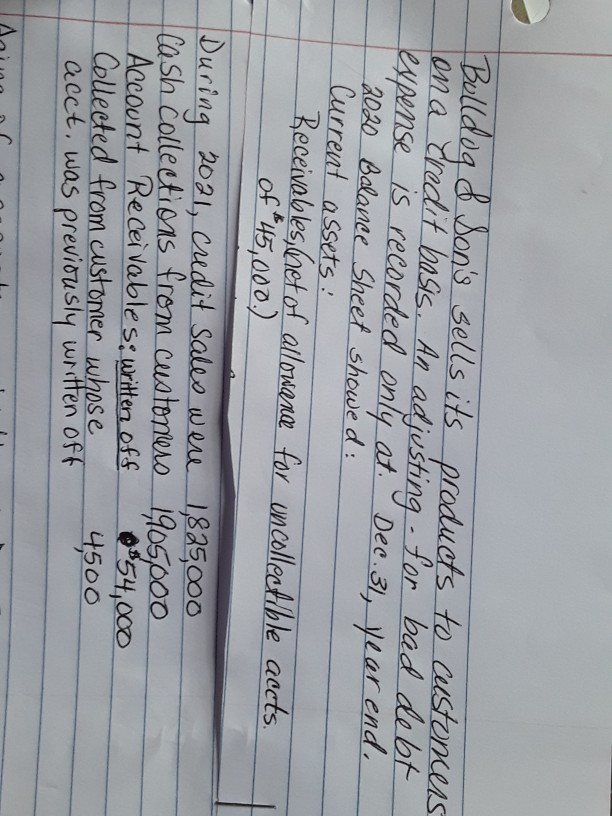 Bulldog & Son's sells its products to customers
on a credit basis. An adjusting - for bad debt
expense is recorded only at. Dec. 31, year end.
2020 Balance Sheet showed:
Current assets:
Receivables, (net of allowance for uncollectible accts.
of $45,000.)
During 2021, credit sales were 1,825,000
Cash Collections from customers 1,905,000
Account Receivables: written off $54,000
Collected from customer whose 4,500
acct. was previously written off
Aging of